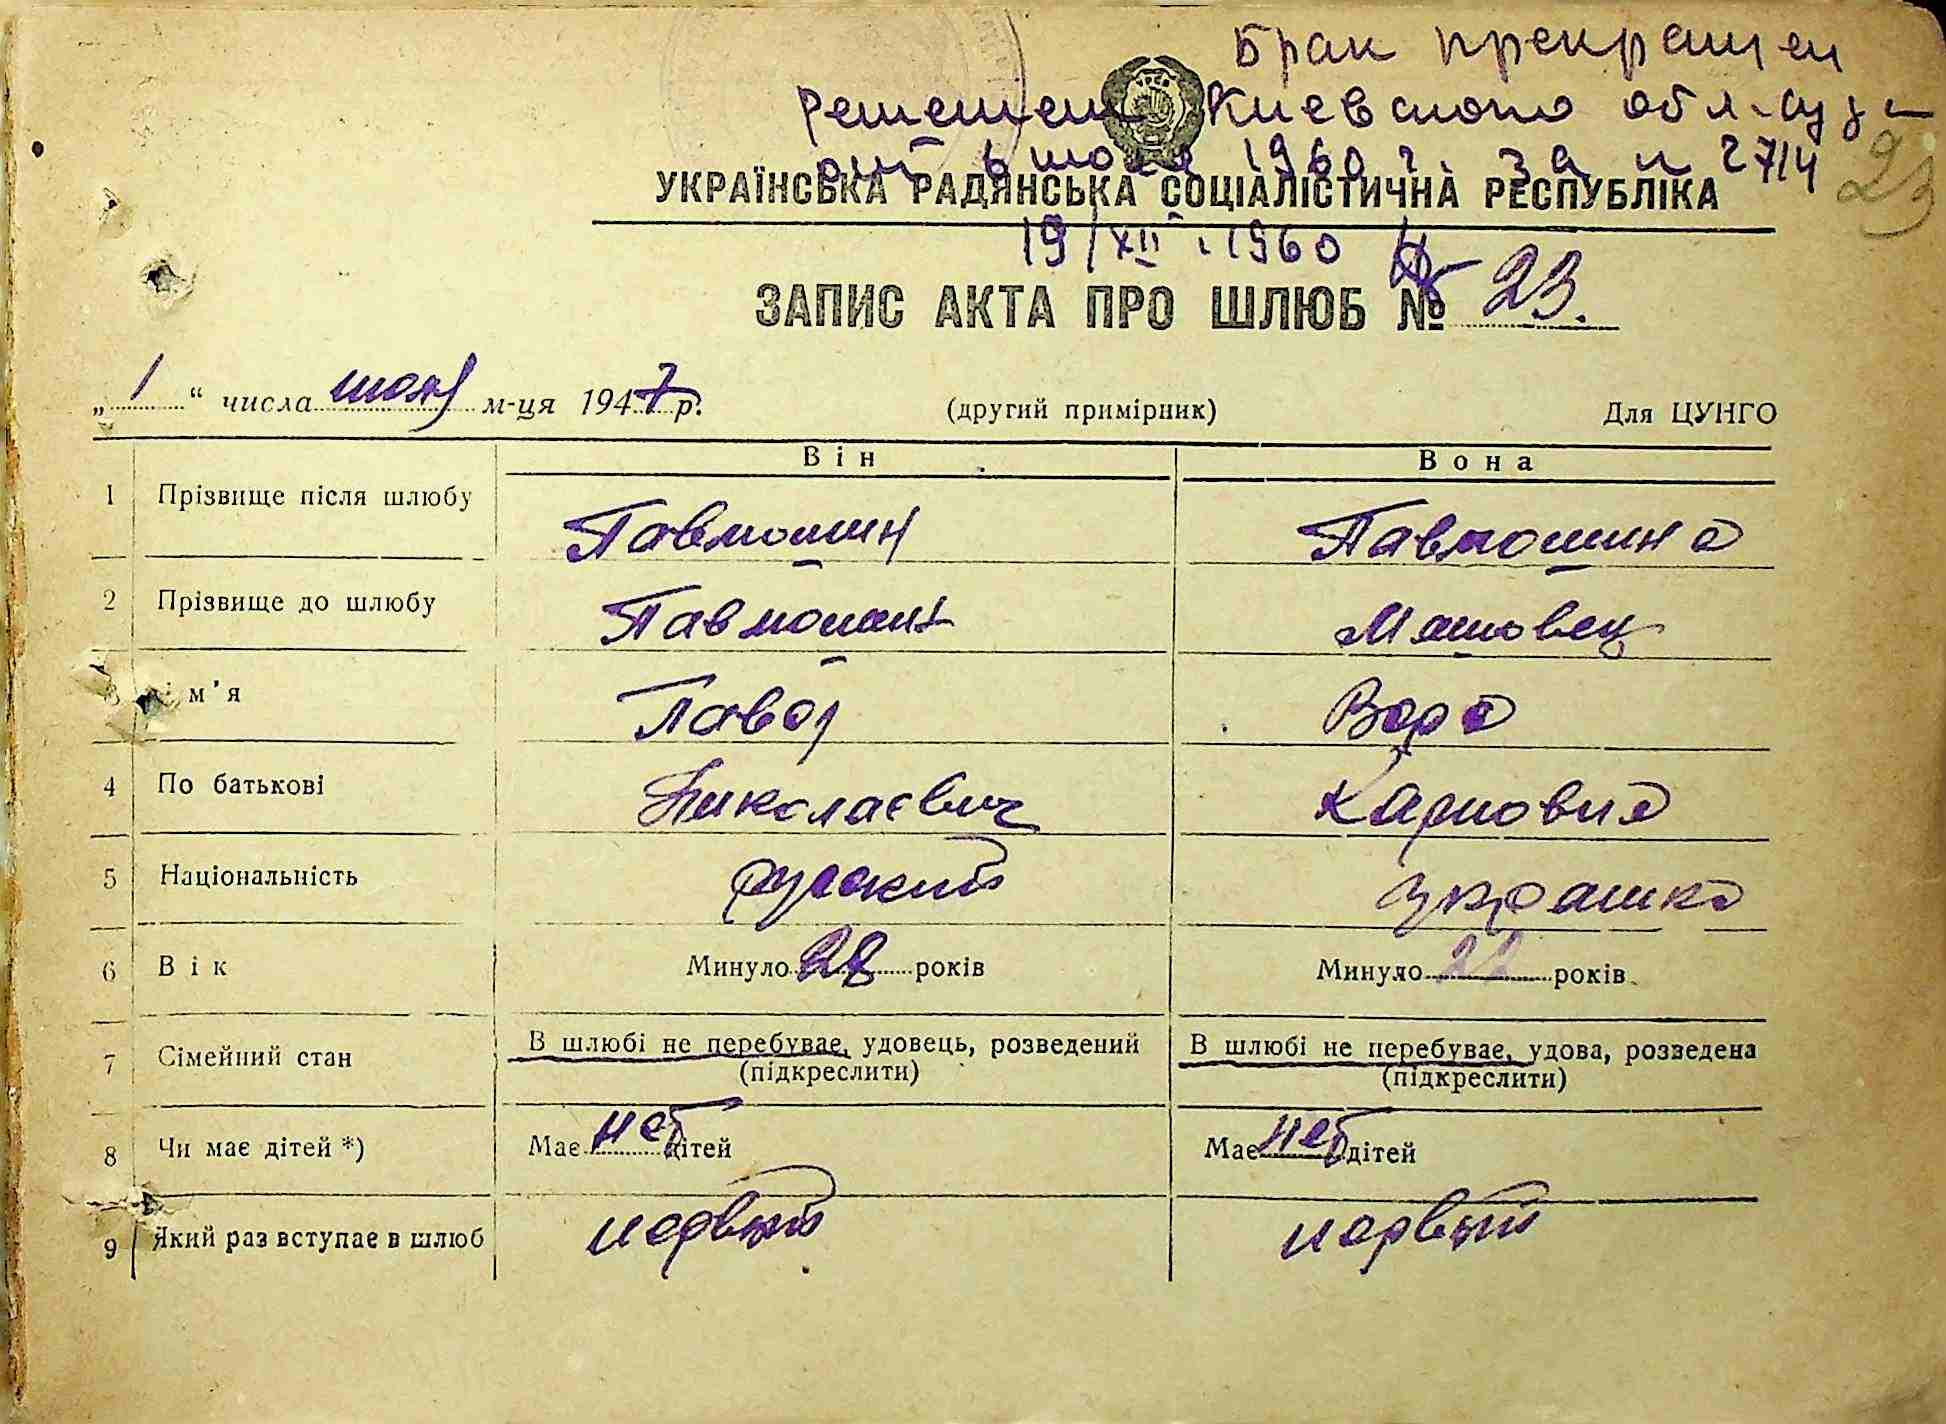 Брак прекращен
решением Киевского обл.суда
от 6 июля 1960 г. за н 2714
23
УКРАЇНСЬКА РАДЯНСЬКА СОЦІАЛІСТИЧНА РЕСПУБЛІКА
19/XII.1960
ЗАПИС АКТА ПРО ШЛЮБ № 23.
„ 1 “ числа м-ця 1947 р. (другий примірник) Для ЦУНГО
Він Вона
1 Прізвище після шлюбу
2 Прізвище до шлюбу
3 ім’я Павел Вера
4 По батькові Николаевич Карповна
5 Національність русский украинка
6 Вік Минуло 28 років Минуло 22 років
7 Сімейний стан В шлюбі не перебуває, удовець, розведений В шлюбі не перебуває, удова, розведена
(підкреслити) (підкреслити)
8 Чи має дітей *) Має нет дітей Має нет дітей
9 Який раз вступає в шлюб первый первый